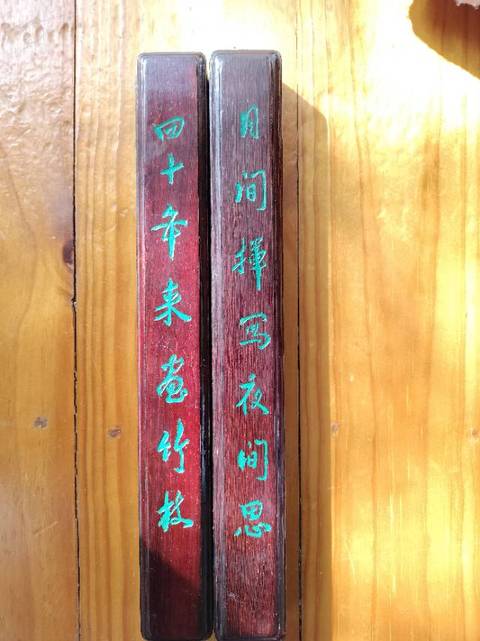 四十年来画竹枝
日间挥写夜间思